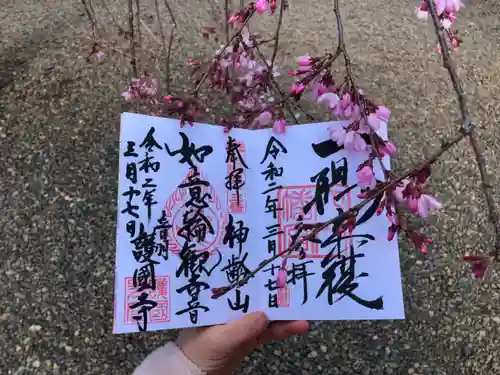 参拝
令和二年三月十七日
奉拝
神齢山
如意輪観音
音羽
護国寺
令和二年
三月十七日